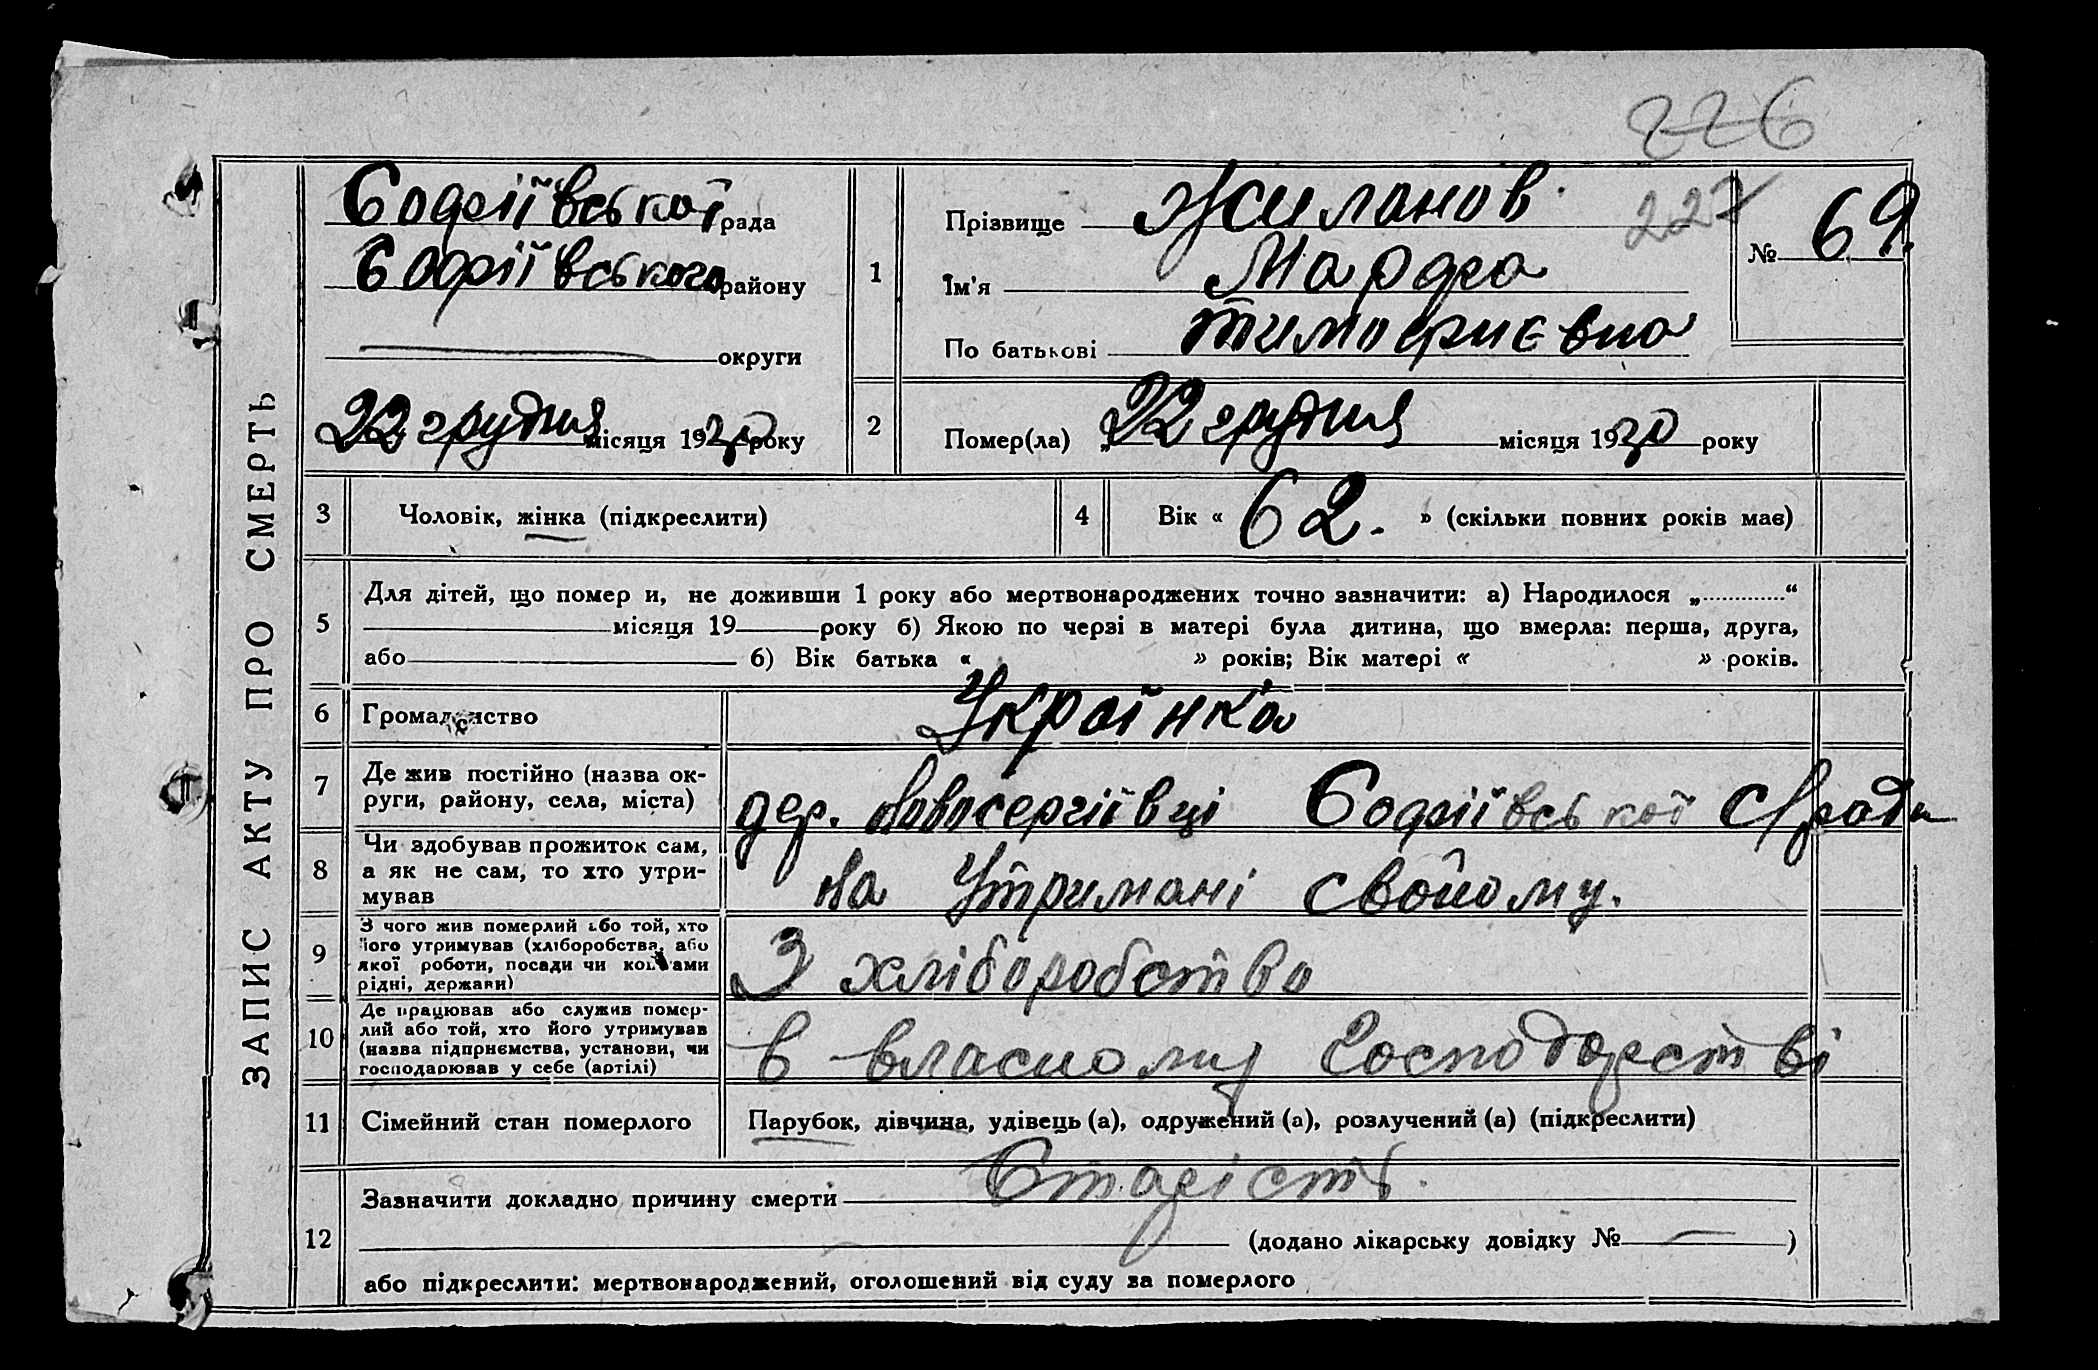 226
227
ЗАПИС АКТУ ПРО СМЕРТЬ
Софіївської рада
Софіївського району
округи
22 грудня місяця 1930 року
1
Прізвище Жиланов
Ім'я Марфа
По батькові Тимофиєвна
№ 69.
2
Помер(ла) „22 грудня місяця 1930 року
3
Чоловік, жінка (підкреслити)
4
Вік « 62. » (скільки повних років має)
5
Для дітей, що помер и, не доживши 1 року або мертвонароджених точно зазначити: а) Народилося „............“
місяця 19 року б) Якою по черзі в матері була дитина, що вмерла: перша, друга,
або б) Вік батька « » років; Вік матері « » років.
6
Громадянство Українка
7
Де жив постійно (назва ок-
руги, району, села, міста)
дер. Новосергіївці Софіївської С/ради
8
Чи здобував прожиток сам,
а як не сам, то хто утри-
мував
На Утримані свойому.
9
З чого жив померлий або той, хто
його утримував (хліборобства, або
якої роботи, посади чи коштами
рідні, держави)
З хліборобства
10
Де працював або служив помер-
лий або той, хто його утримував
(назва підприємства, установи, чи
господарював у себе (артілі)
в власному Господарстві
11
Сімейний стан померлого
Парубок, дівчина, удівець (а), одружений (а), розлучений (а) (підкреслити)
12
Зазначити докладно причину смерти Старість.
(додано лікарську довідку № — )
або підкреслити: мертвонароджений, оголошений від суду за померлого